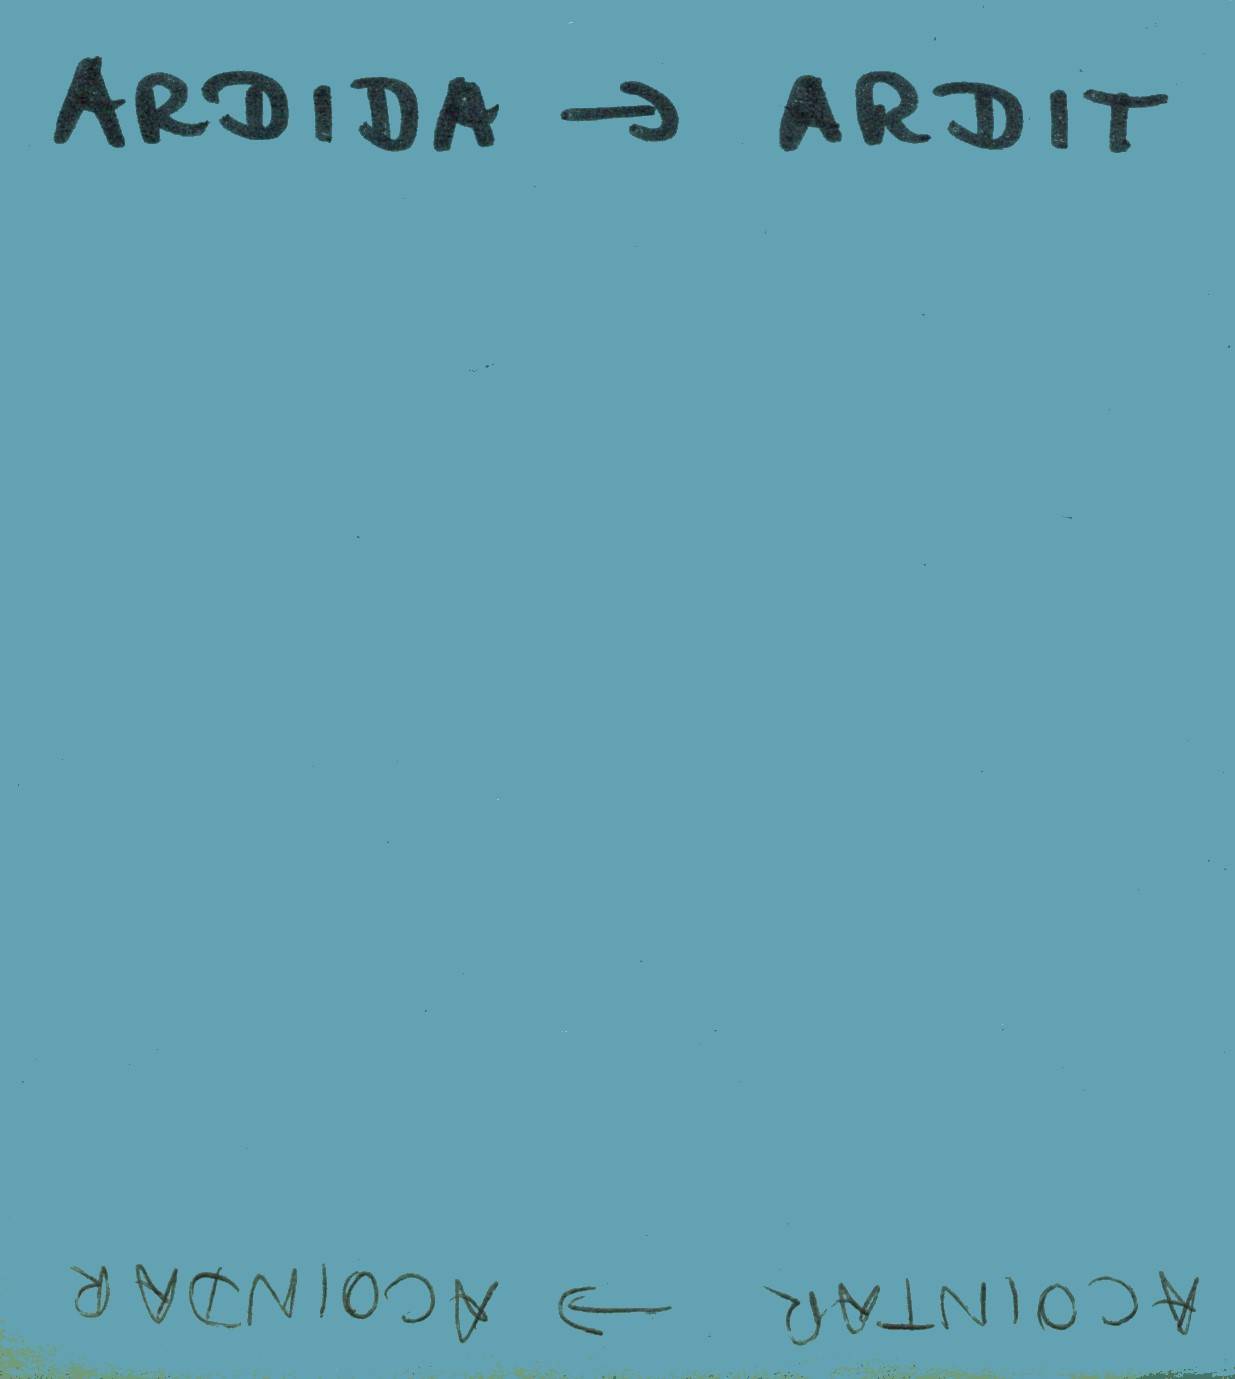 ARDIDA → ARDIT
ACOINTAR → ACOINDAR